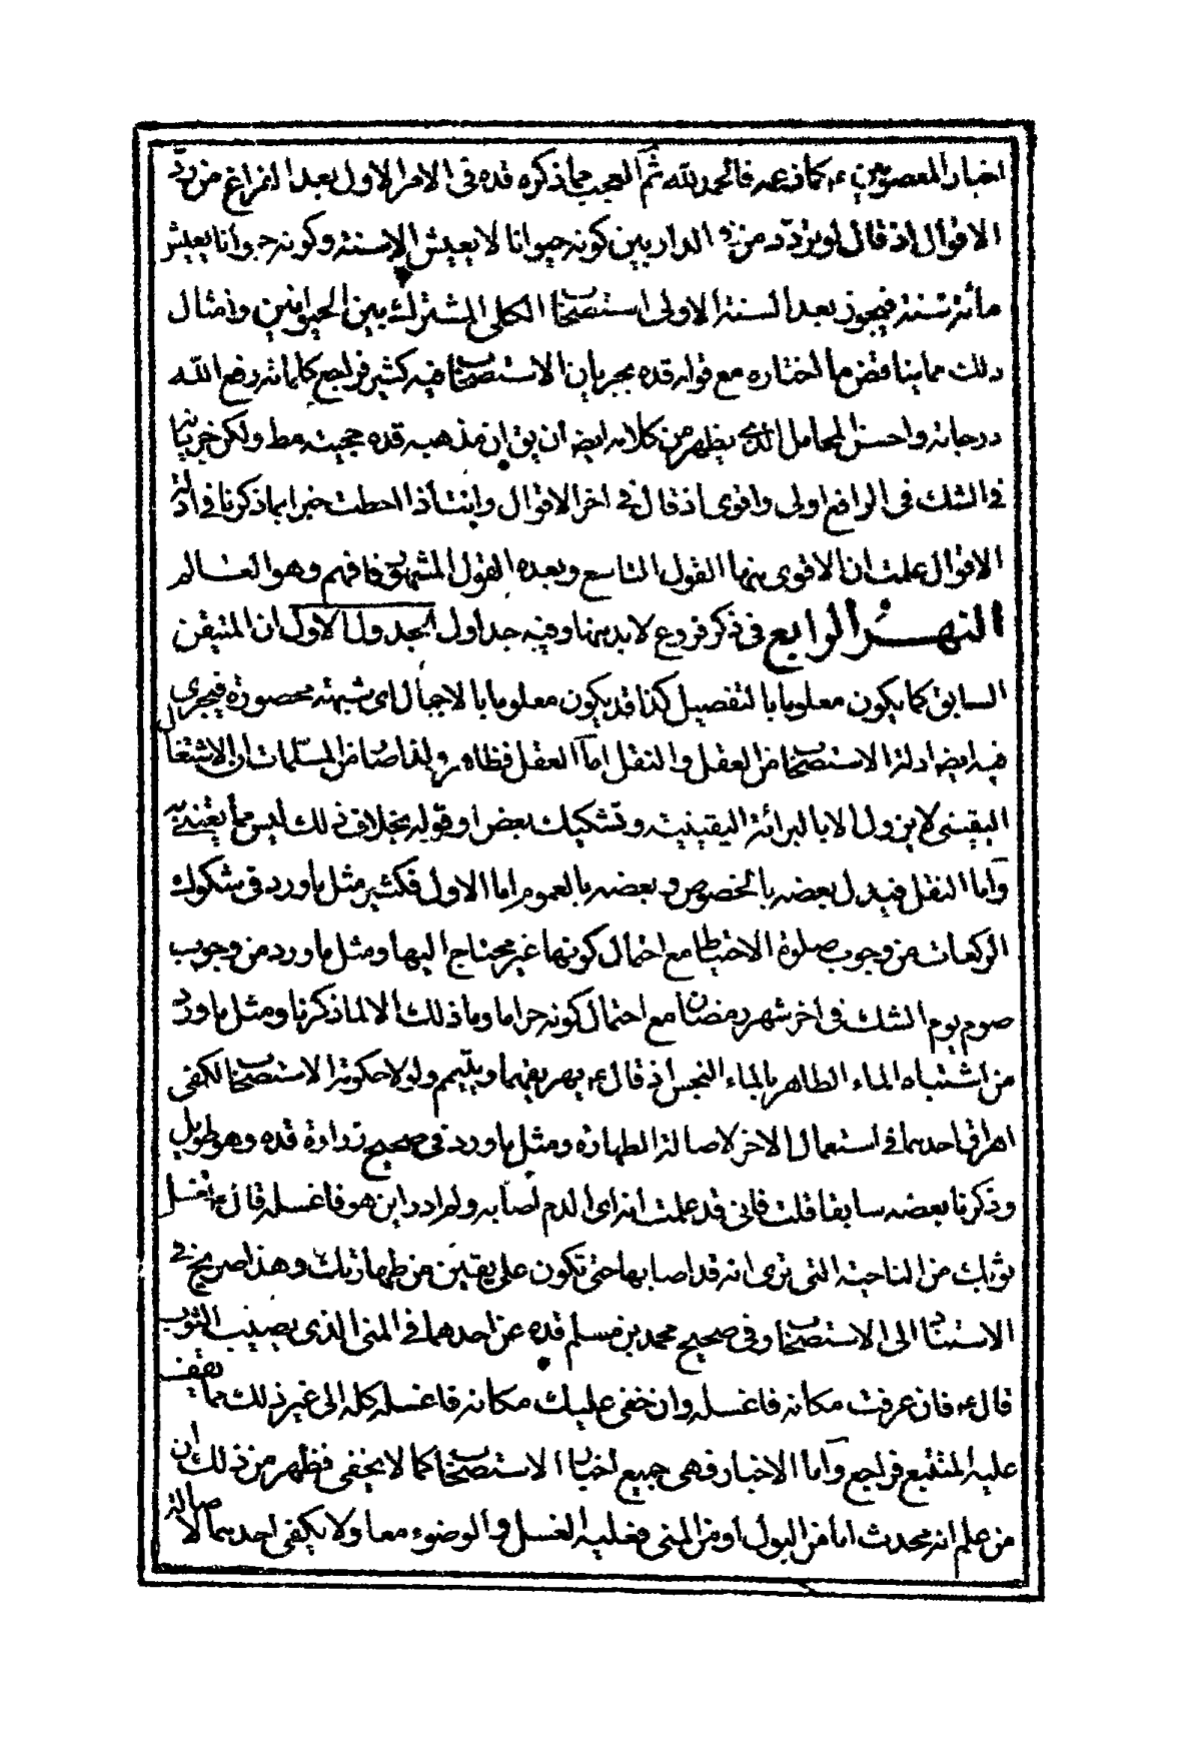 اخبار المعصومين ع، كما زعمه فالحمد لله ثم العجب مما ذكره قده فى الامر الاول بعد الفراغ من ردّ
الاقوال اذ قال لو تردّد من فى الدار بين كونه حيوانا لا يعيش الا سنة وكونه حيوانا يعيش
مأئة سنة فيجوز بعد السنة الاولى استصحاب الكلى المشترك بين الحيوانين وامثال
ذلك مما يناقض ما اختاره مع قوله قده بجريان الاستصحاب فيه كثير فراجع كلماته رفع الله
درجاته واحسن المحامل الذى يظهر من كلامه ايضا ان يق ان مذهبه قده حجيته مط ولكن جريانه
فى الشك فى الرافع اولى واقوى اذ قال فى اخر الاقوال وانت أذا احطت خبرا بما ذكرنا فى ادلة
الاقوال علمت ان الاقوى منها القول التاسع وبعده القول المشهور فافهم وهو العالم
النهر الرابع فى ذكر فروع لا بد منها وفيه جداول الجدول الاول ان المتيقن
السابق كما يكون معلوما بالتفصيل كذا قد يكون معلوما بالاجمال اى بشبهة محصورة فيجرى
فيه ايضا ادلة الاستصحاب من العقل والنقل امّا العقل فظاهر ولذا صار من المسلّمات ان الاشتغال
اليقينى لا يزول الا بالبرائة اليقينية وتشكيك بعض او قوله بخلاف ذلك ليس مما يعتنى به
وآما النقل فيدل بعضه بالخصوص وبعضه بالعموم اما الاول فكثير مثل ما ورد فى شكوك
الركعات من وجوب صلوة الاحتياط مع احتمال كونها غير محتاج اليها ومثل ما ورد من وجوب
صوم يوم الشك فى اخر شهر رمضان مع احتمال كونه حراما وما ذلك الا لما ذكرنا ومثل ما ورد
من اشتباه الماء الطاهر بالماء النجس اذ قال ع، يهريقهما ويتيمم ولولا حكومة الاستصحاب لكفى
اهراق احدهما فى استعمال الاخر لاصالة الطهارة ومثل ما ورد فى صحيح زرارة قده وهو طويل
وذكرنا بعضه سابقا قلت فانى قد علمت انه اى الدم اصابه ولم ادر اين هو فاغسله قال ع، تغسل
ثوبك من الناحية التى ترى انه قد اصابها حتى تكون على يقين من طهارتك وهذا صريح فى
الاستناد الى الاستصحاب وفى صحيح محمد بن مسلم قده عن احدهما فى المنى الذى يصيب الثوب
قال ع، فان عرفت مكانه فاغسله وان خفى عليك مكانه فاغسله كله الى غير ذلك مما يقف
عليه المتتبع فراجع وآما الاخبار فهى جميع اخبار الاستصحاب كما لا يخفى فظهر من ذلك ان
من علم انه محدث اما من البول او من المنى فعليه الغسل والوضوء معا ولا يكفى احدهما لاصالة